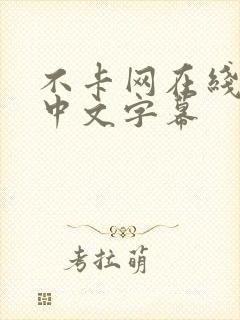 不卡网在线
中文字幕
考拉萌